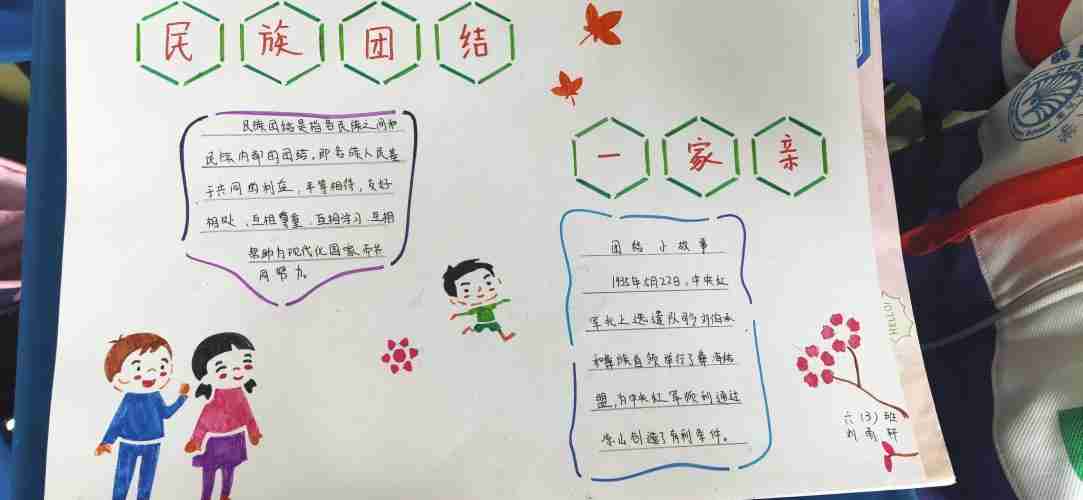 民族团结
民族团结是指各民族之间和
民族内部的团结。即各族人民基
于共同的利益,平等相待,友好
相处、互相尊重、互相学习、互相
帮助为现代化国家而共
同努力。
一家亲
团结小故事
1935年5月22日,中央红
军北上先遣队的刘伯承
和彝族首领举行了彝海结
盟,为中央红军顺利通过
凉山创造了有利条件。
六(3)班
刘雨轩
HELLO!